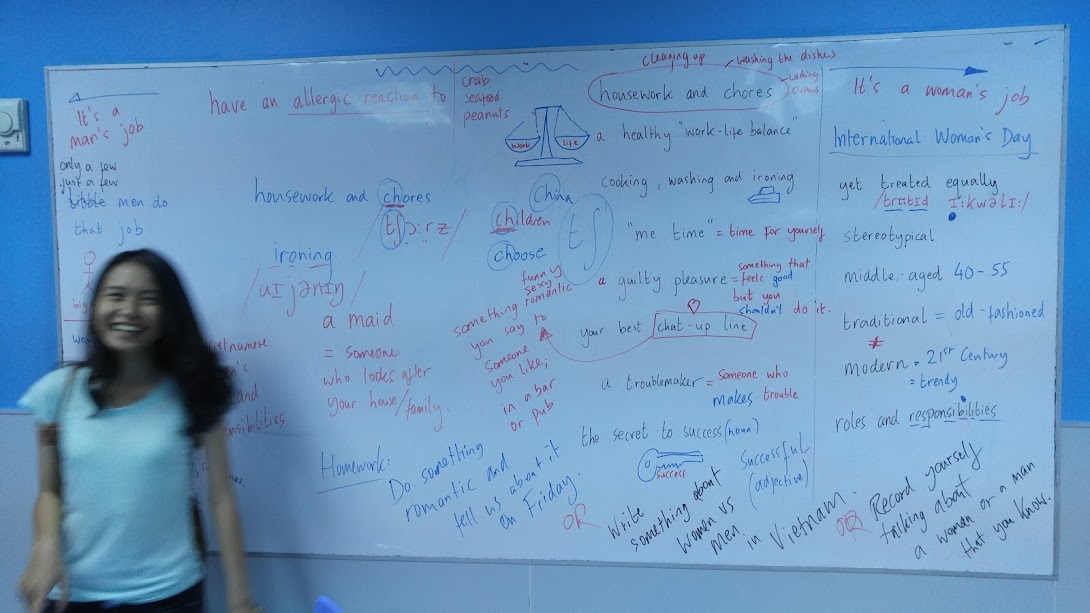 It's a
man's job
only a few
just a few
little men do
that job
big
have an allergic reaction to
crab
seafood
peanuts
housework and chores
/tʃɔːrz/
ironing
/aɪjənɪŋ/
a maid
= someone
who looks after
your house/family.
China
children
choose
tʃ
funny
sexy
romantic
something
you say to
someone
you like,
in a bar
or pub
cleaning up
washing the dishes
washing
clothes
housework and chores
work
life
a healthy "work-life balance"
cooking, washing and ironing
"me time" = time for yourself
a guilty pleasure = something that
feels good
but you
shouldn't do it.
your best chat-up line
a troublemaker = someone who
makes trouble
the secret to success (noun)
success
successful
(adjective)
It's a woman's job
International Woman's Day
yet treated equally
/triːtɪd ɪːkwəlɪː/
stereotypical
middle-aged 40-55
traditional = old-fashioned
modern = 21st Century
= trendy
roles and responsibilities
Vietnamese
and
Homework:
Do something
romantic and
tell us about it
on Friday.
OR
Write
something about
women vs
men in Vietnam.
OR
Record yourself
talking about
a woman or a man
that you know.